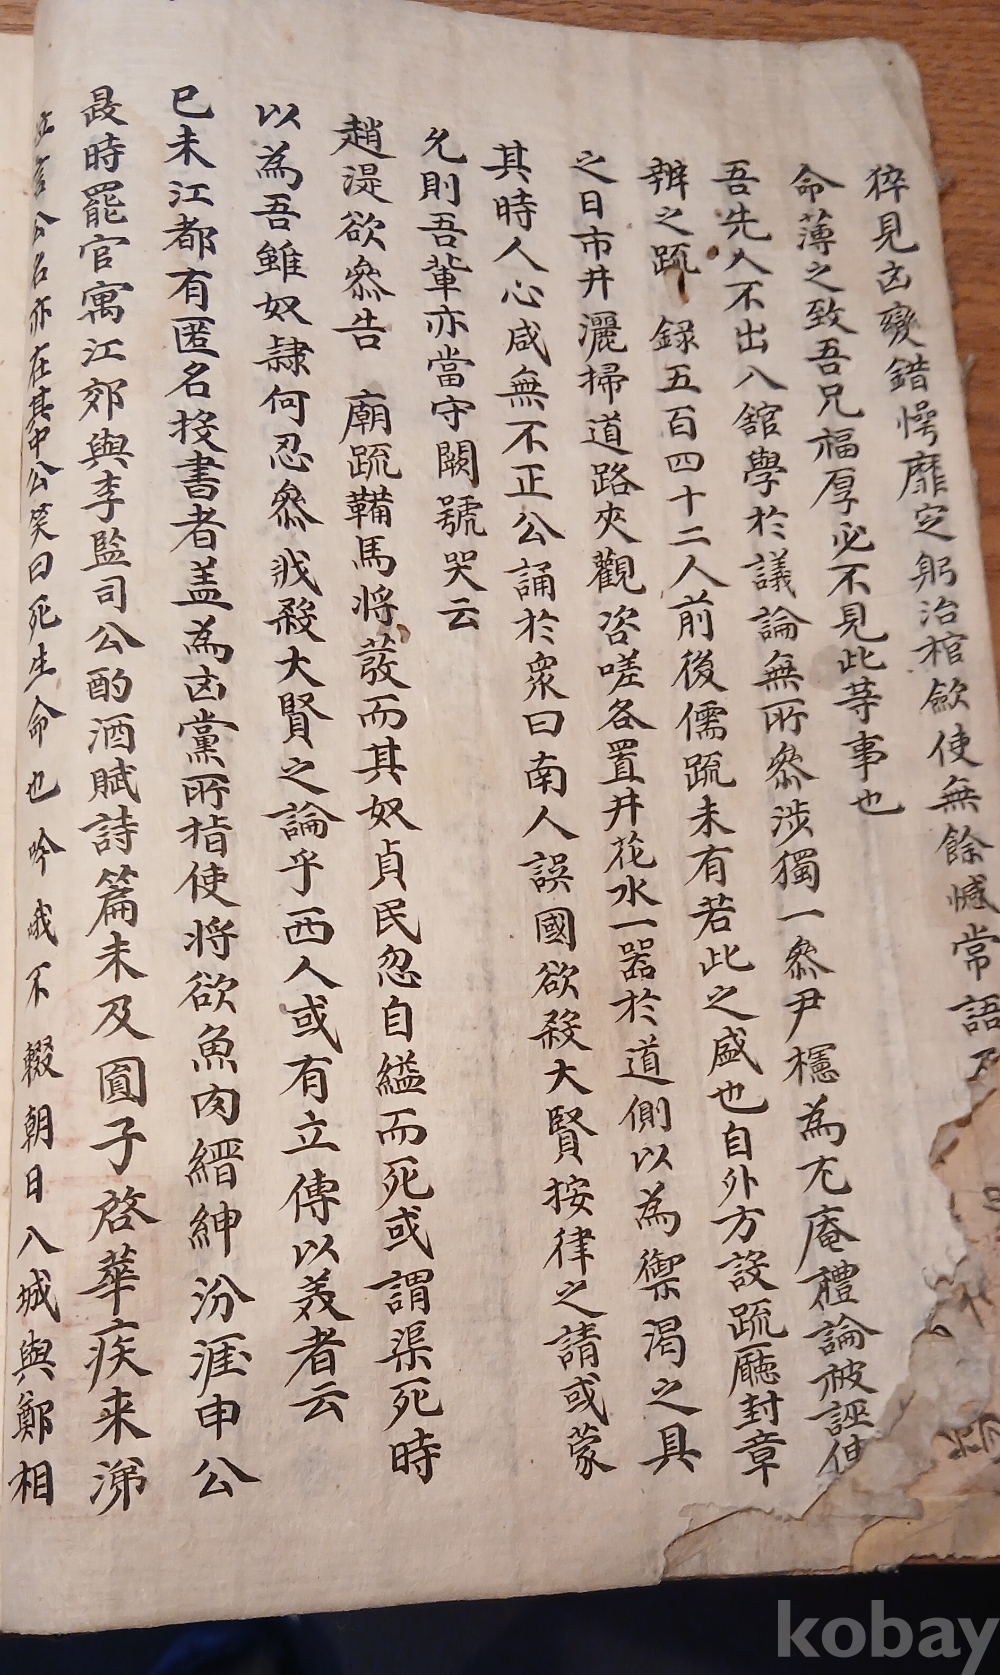 猝見凶變錯愕靡定躬治棺歛使無餘憾常語及
命薄之致吾兄福厚必不見此等事也
吾先人不出八舘學於議論無所叅涉獨一叅尹櫶為尤庵禮論被誣伸
辨之疏 錄五百四十二人前後儒疏未有若此之盛也自外方設疏廳封章
之日市井灑掃道路夾觀咨嗟各置井花水一器於道側以為禦渴之具
其時人心咸無不正公誦於衆曰南人誤國欲殺大賢按律之請或蒙
允則吾輩亦當守闕號哭云
趙湜欲叅告 廟疏鞴馬將發而其奴貞民忽自縊而死或謂渠死時
以為吾雖奴隷何忍叅戕殺大賢之論乎西人或有立傳以美者云
巳未江都有匿名投書者盖為凶黨所指使將欲魚肉縉紳汾涯申公
㝡時罷官寓江郊與李監司公酌酒賦詩篇未及圓子啓華疾来涕
泣言公名亦在其中公笑曰死生命也吟哦不輟朝日入城與鄭相
kobay